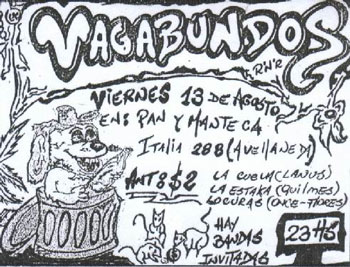 VAGABUNDOS
RN'R
VIERNES 13 DE AGOSTO
EN: PAN Y MANTECA
ITALIA 288 (AVELLANEDA)
ANT: $2
LA CUEVA (LANUS)
LA ESTAKA (QUILMES)
LOCURAS (ONCE-FLORES)
HAY
BANDAS
INVITADAS
23 HS